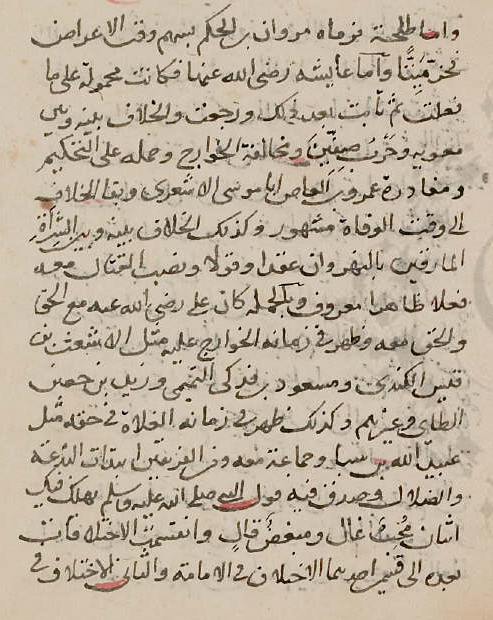 واما طلحة فرماه مروان بن الحكم بسهم وقت الاعراض
فخر ميتا وأما عايشه رضى الله عنها فكانت محمولة على ما
فعلت ثم تابت بعد ذلك ورجعت والخلاف بينه وبين
معويه وحرب صفين ومخالفة الخوارج وحمله على التحكيم
ومغادرة عمرو بن العاص ابا موسى الاشعرى وبقا الخلاف
الى وقت الوفاة مشهور وكذلك الخلاف بينه وبين الشراة
المارقين بالنهروان عقدا وقولا ونصب القتال معه
فعلا ظاهرا معروف وبالجمله كان على رضى الله عنه مع الحق
والحق معه وظهر فى زمانه الخوارج عليه مثل الاشعث بن
قيس الكندى ومسعود بن فدكى التميمى وزيد بن حصين
الطاى وغيرهم وكذلك ظهر فى زمانه الغلاة فى حقه مثل
عبد الله بن سبا وجماعة معه ومن الفريقين ابتدات البدعة
والضلال وصدق فيه قول النبى صلى الله عليه وسلم يهلك فيك
اثنان محب غال ومبغض قال وانقسمت الاختلافات
بعده الى قسمين احدهما الاختلاف فى الامامة والثانى الاختلاف فى